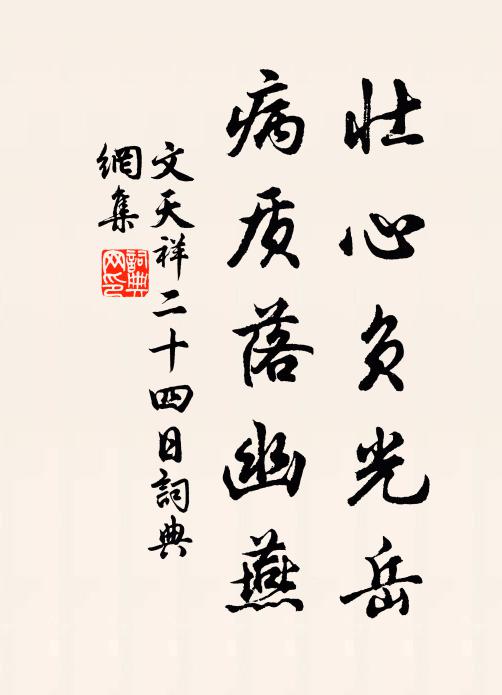 壮心负光岳
病质落幽燕
文天祥二十四日詞典
網集
詞典
网印